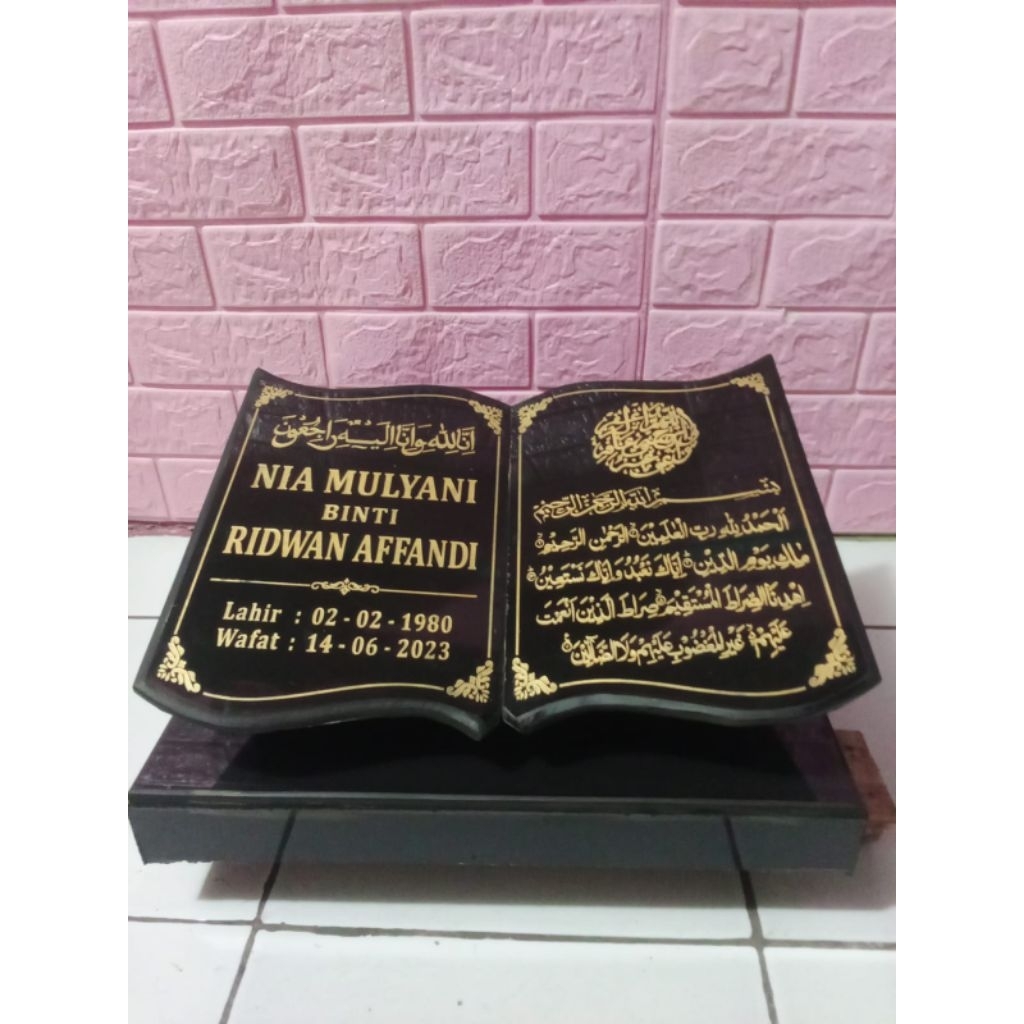 إنا لله وإنا إليه راجعون
NIA MULYANI
BINTI
RIDWAN AFFANDI
Lahir : 02 - 02 - 1980
Wafat : 14 - 06 - 2023
بسم الله الرحمن الرحيم
الحمد لله رب العلمين الرحمن الرحيم
ملك يوم الدين إياك نعبد وإياك نستعين
اهدنا الصراط المستقيم صراط الذين أنعمت
عليهم غير المغضوب عليهم ولا الضالين